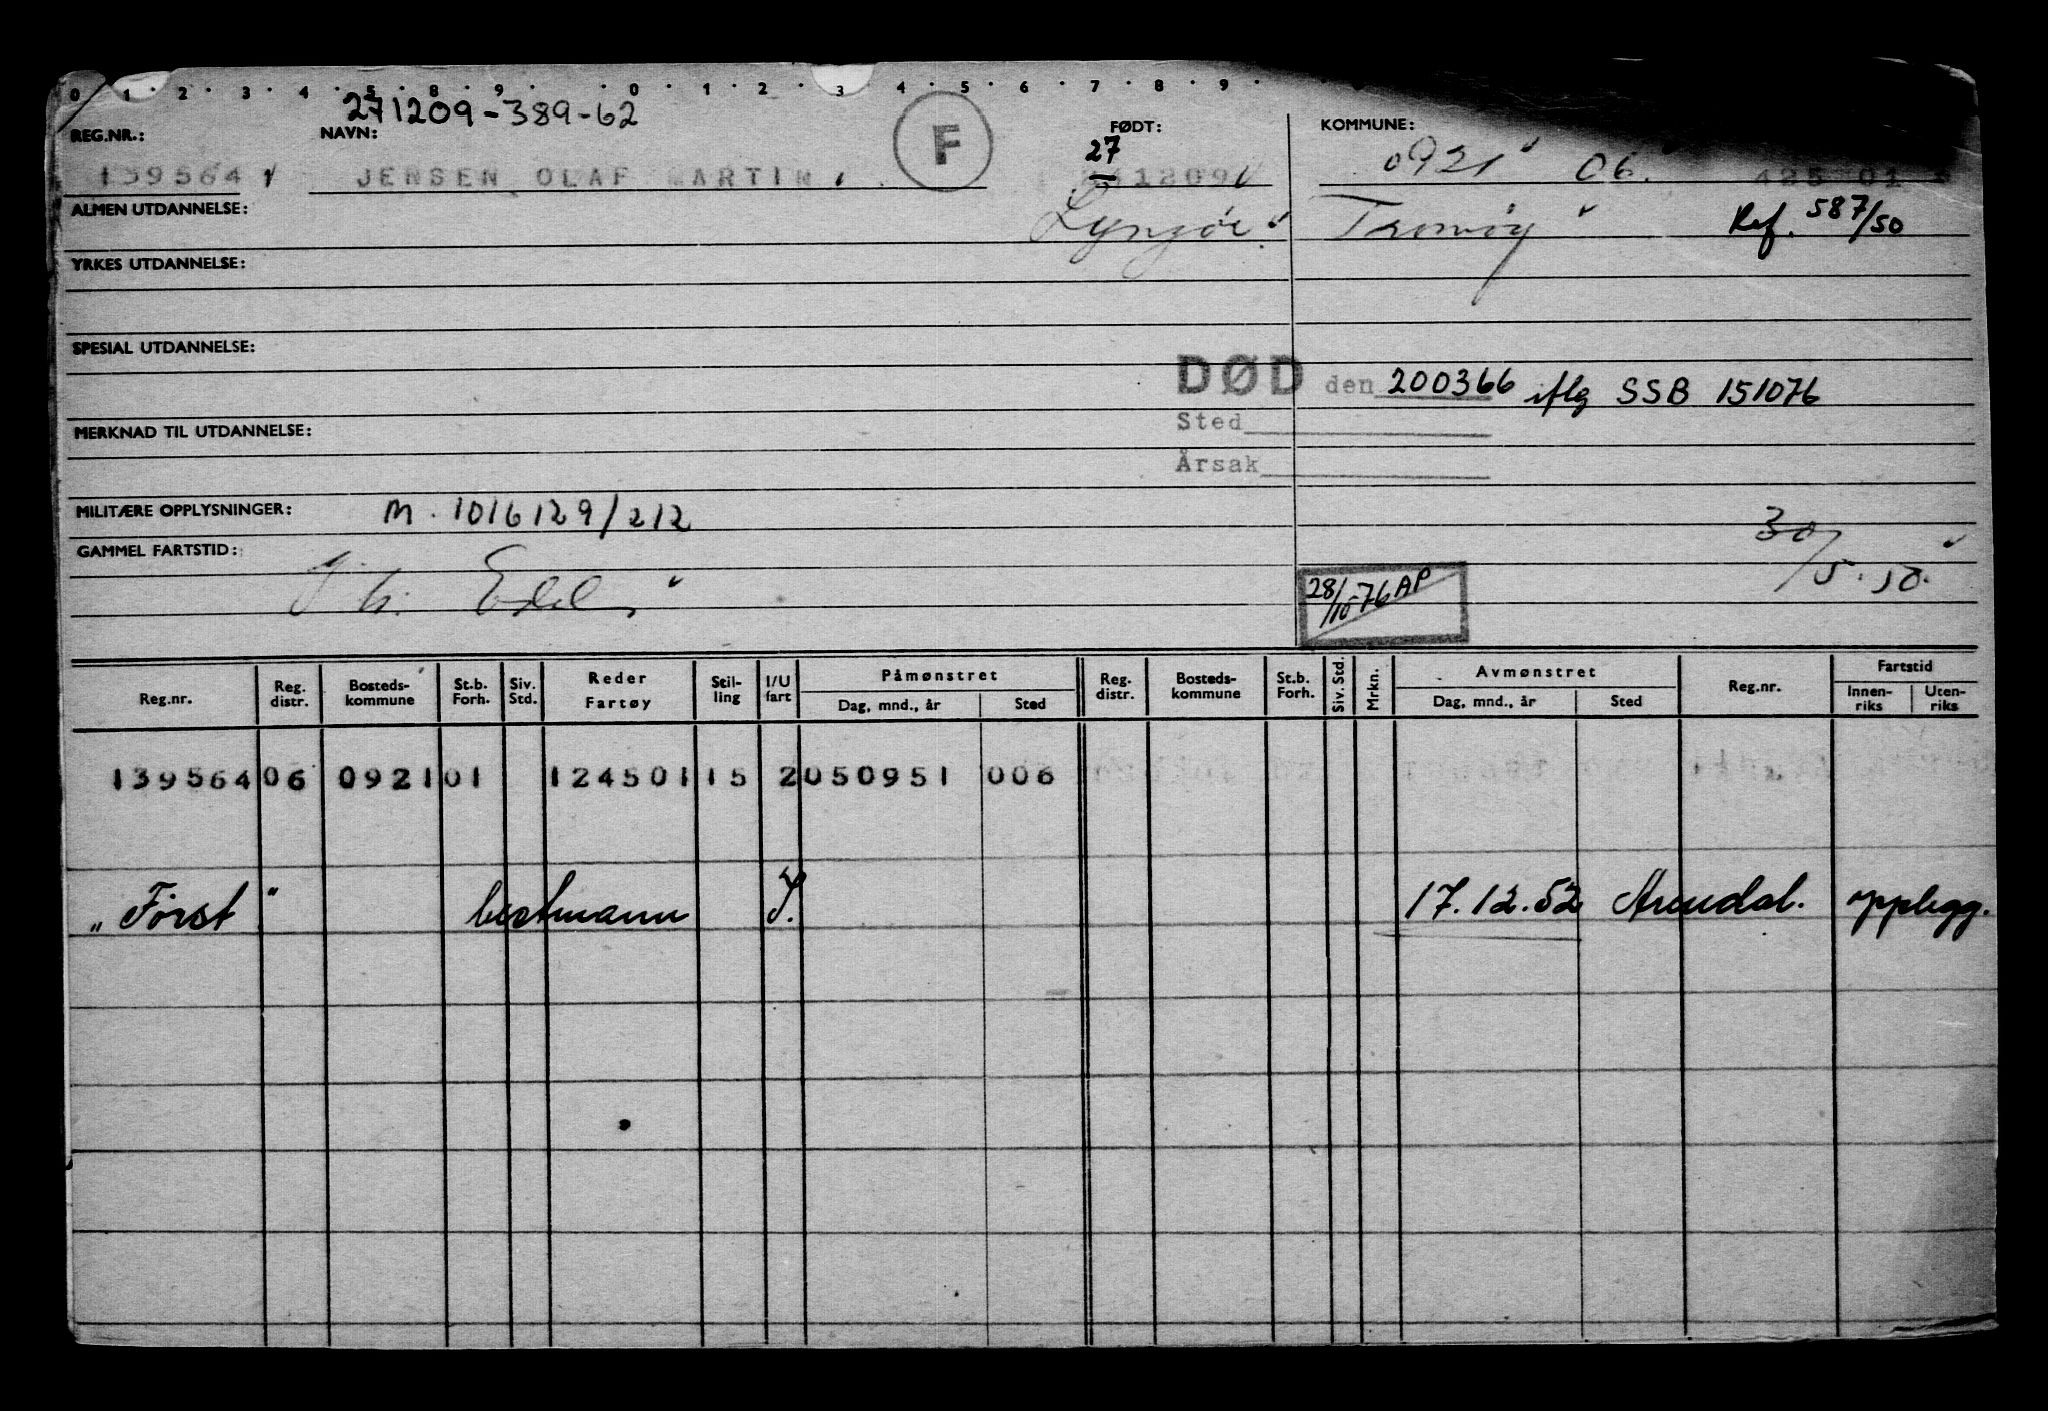 0 1 2 3 4 5 8 9 0 1 2 3 4 5 6 7 8 9
271209-389-62
REG.NR.: NAVN: F FØDT: KOMMUNE:
27
139564 JENSEN OLAF MARTIN 1209 0921 06. 425 01
ALMEN UTDANNELSE: Lyngör. Tromöy Ref. 587/50
YRKES UTDANNELSE:
SPESIAL UTDANNELSE:
DØD den 200366 iflg SSB 151076
Sted
MERKNAD TIL UTDANNELSE:
Årsak
MILITÆRE OPPLYSNINGER: M. 1016129/212
30/5.
GAMMEL FARTSTID:
28/10-76 AP
Reg.nr. Reg. distr. Bosteds- kommune St.b. Forh. Siv. Std. Reder Fartøy Stil- ling I/U fart Påmønstret Dag, mnd., år Sted Reg. distr. Bosteds- kommune St.b. Forh. Siv. Std. Mrkn. Avmønstret Dag, mnd., år Sted Reg.nr. Fartstid Innen- riks Uten- riks
139564 06 0921 01 124501 15 2 050951 006
"Först" bestmann I. 17.12.52 Arendal. opplegg.